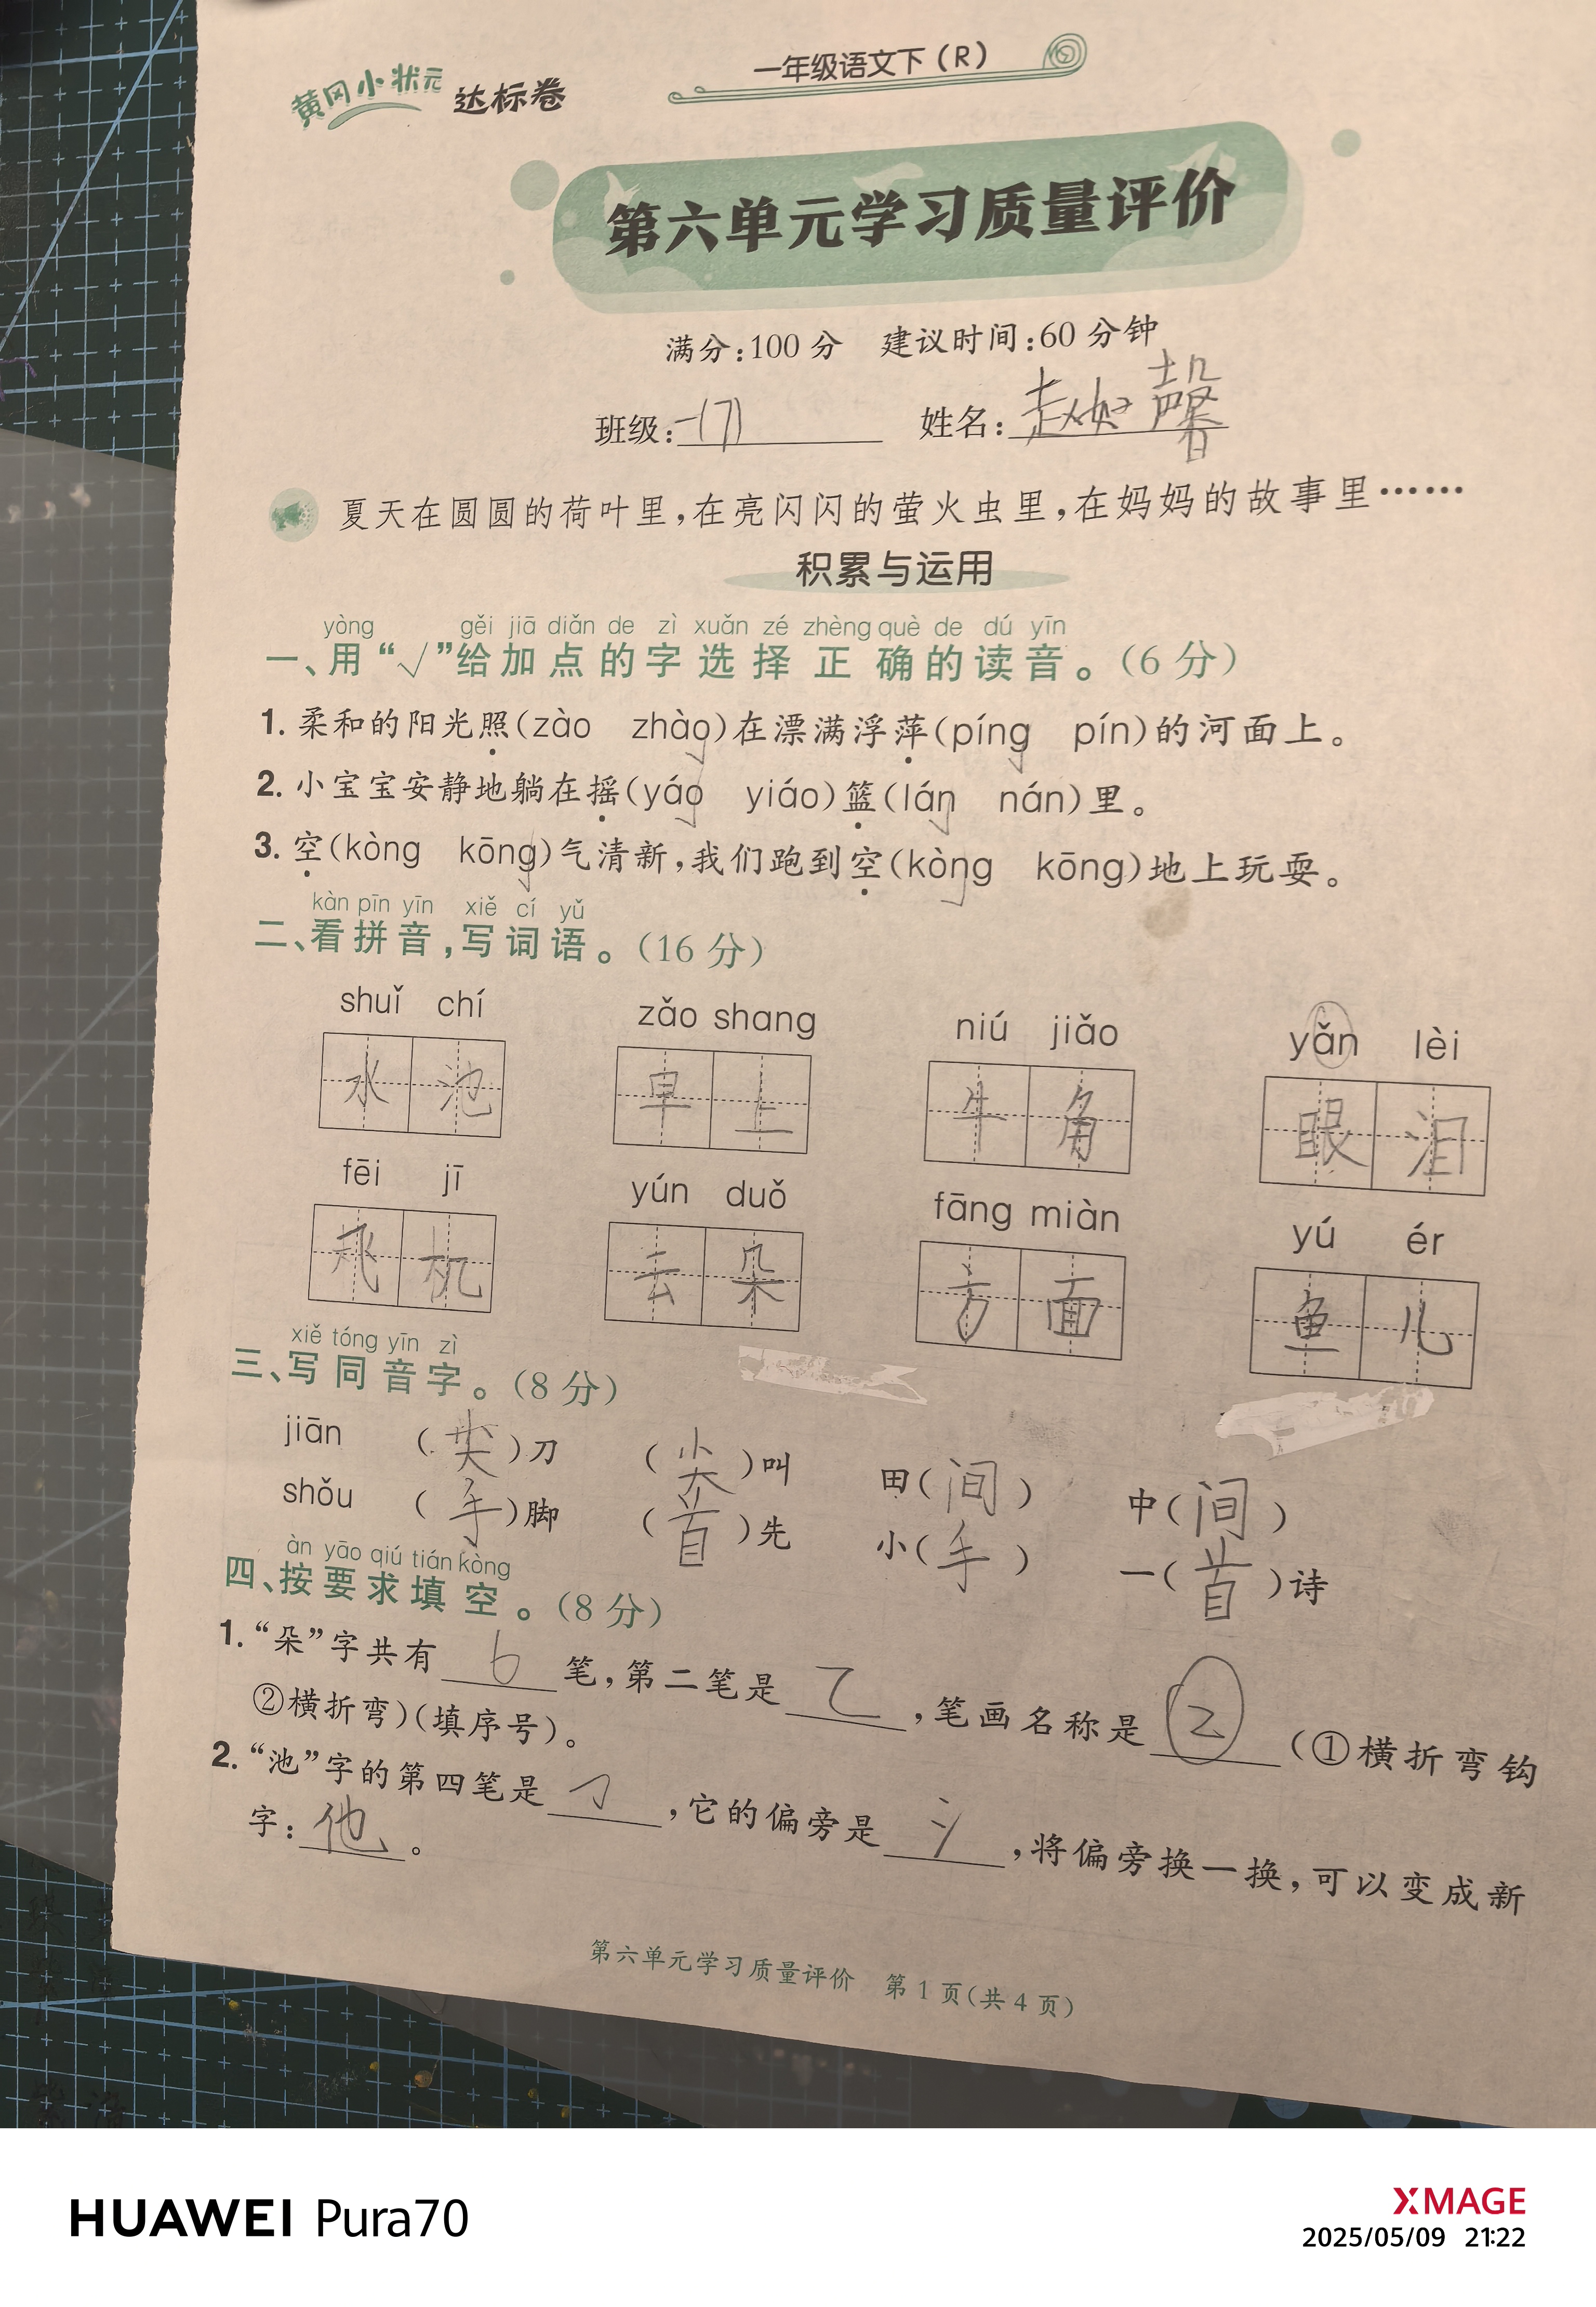 黄冈小状元 达标卷
一年级语文下（R）
第六单元学习质量评价
满分:100 分 建议时间:60 分钟
班级: 一(7) 姓名: 赵如馨
夏天在圆圆的荷叶里,在亮闪闪的萤火虫里,在妈妈的故事里……
积累与运用
yòng gěi jiā diǎn de zì xuǎn zé zhèng què de dú yīn
一、用“√”给加点的字选择正确的读音。(6 分)
1. 柔和的阳光照(zào zhào)在漂满浮萍(píng pín)的河面上。
2. 小宝宝安静地躺在摇(yáo yiáo)篮(lán nán)里。
3. 空(kòng kōng)气清新,我们跑到空(kòng kōng)地上玩耍。
kàn pīn yīn xiě cí yǔ
二、看拼音,写词语。(16 分)
shuǐ chí zǎo shang niú jiǎo yǎn lèi
水池 早上 牛角 眼泪
fēi jī yún duǒ fāng miàn yú ér
飞机 云朵 方面 鱼儿
xiě tóng yīn zì
三、写同音字。(8 分)
jiān (尖)刀 (尖)叫 田(间) 中(间)
shǒu (手)脚 (首)先 小(手) 一(首)诗
àn yāo qiú tián kòng
四、按要求填空。(8 分)
1. “朵”字共有 6 笔,第二笔是 ㇈ ,笔画名称是 ② (①横折弯钩
②横折弯)(填序号)。
2. “池”字的第四笔是 ㇆ ,它的偏旁是 氵 ,将偏旁换一换,可以变成新
字: 他 。
第六单元学习质量评价 第 1 页(共 4 页)
HUAWEI Pura70
XMAGE
2025/05/09 21:22